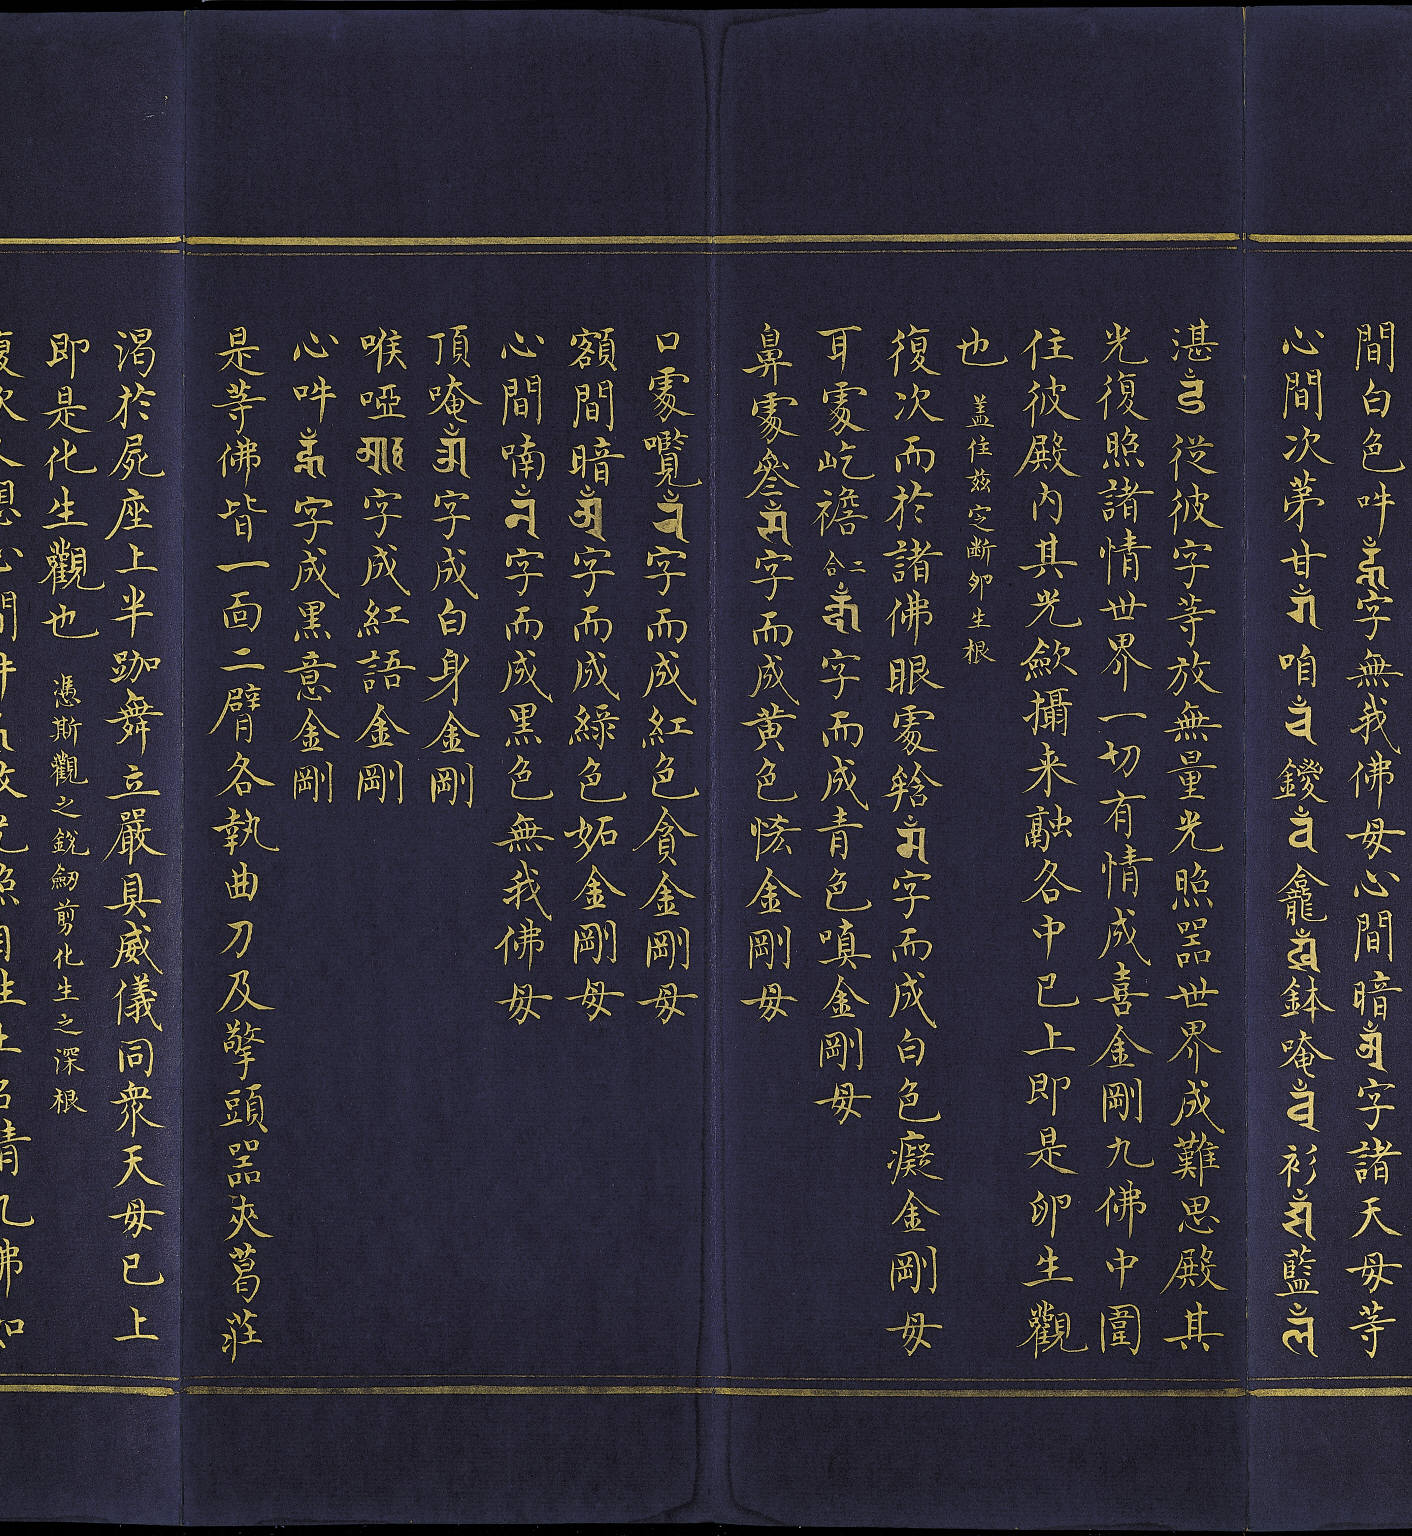 間白色吽字無我佛母心間暗字諸天母等
心間次苐甘咱鑁龕鉢唵衫藍
湛從彼字等放無量光照噐世界成難思殿其
光復照諸情世界一切有情成喜金剛九佛中圍
住彼殿內其光歛攝来融各中已上即是卵生觀
也 盖住兹㝎断夘生根
復次而於諸佛眼䖏字而成白色癡金剛母
耳䖏屹二合字而成青色嗔金剛母
鼻䖏叅字而成黄色悋金剛母
口䖏字而成紅色貪金剛母
額間暗字而成綠色妬金剛母
心間喃字而成黑色無我佛母
頂唵字成白身金剛
喉啞字成紅語金剛
心吽字成黑意金剛
是等佛皆一面二臂各執曲刀及擎頭噐夾葛莊
渴於屍座上半跏舞立嚴具威儀同衆天母已上
即是化生觀也 憑斯觀之銳劒剪化生之深根